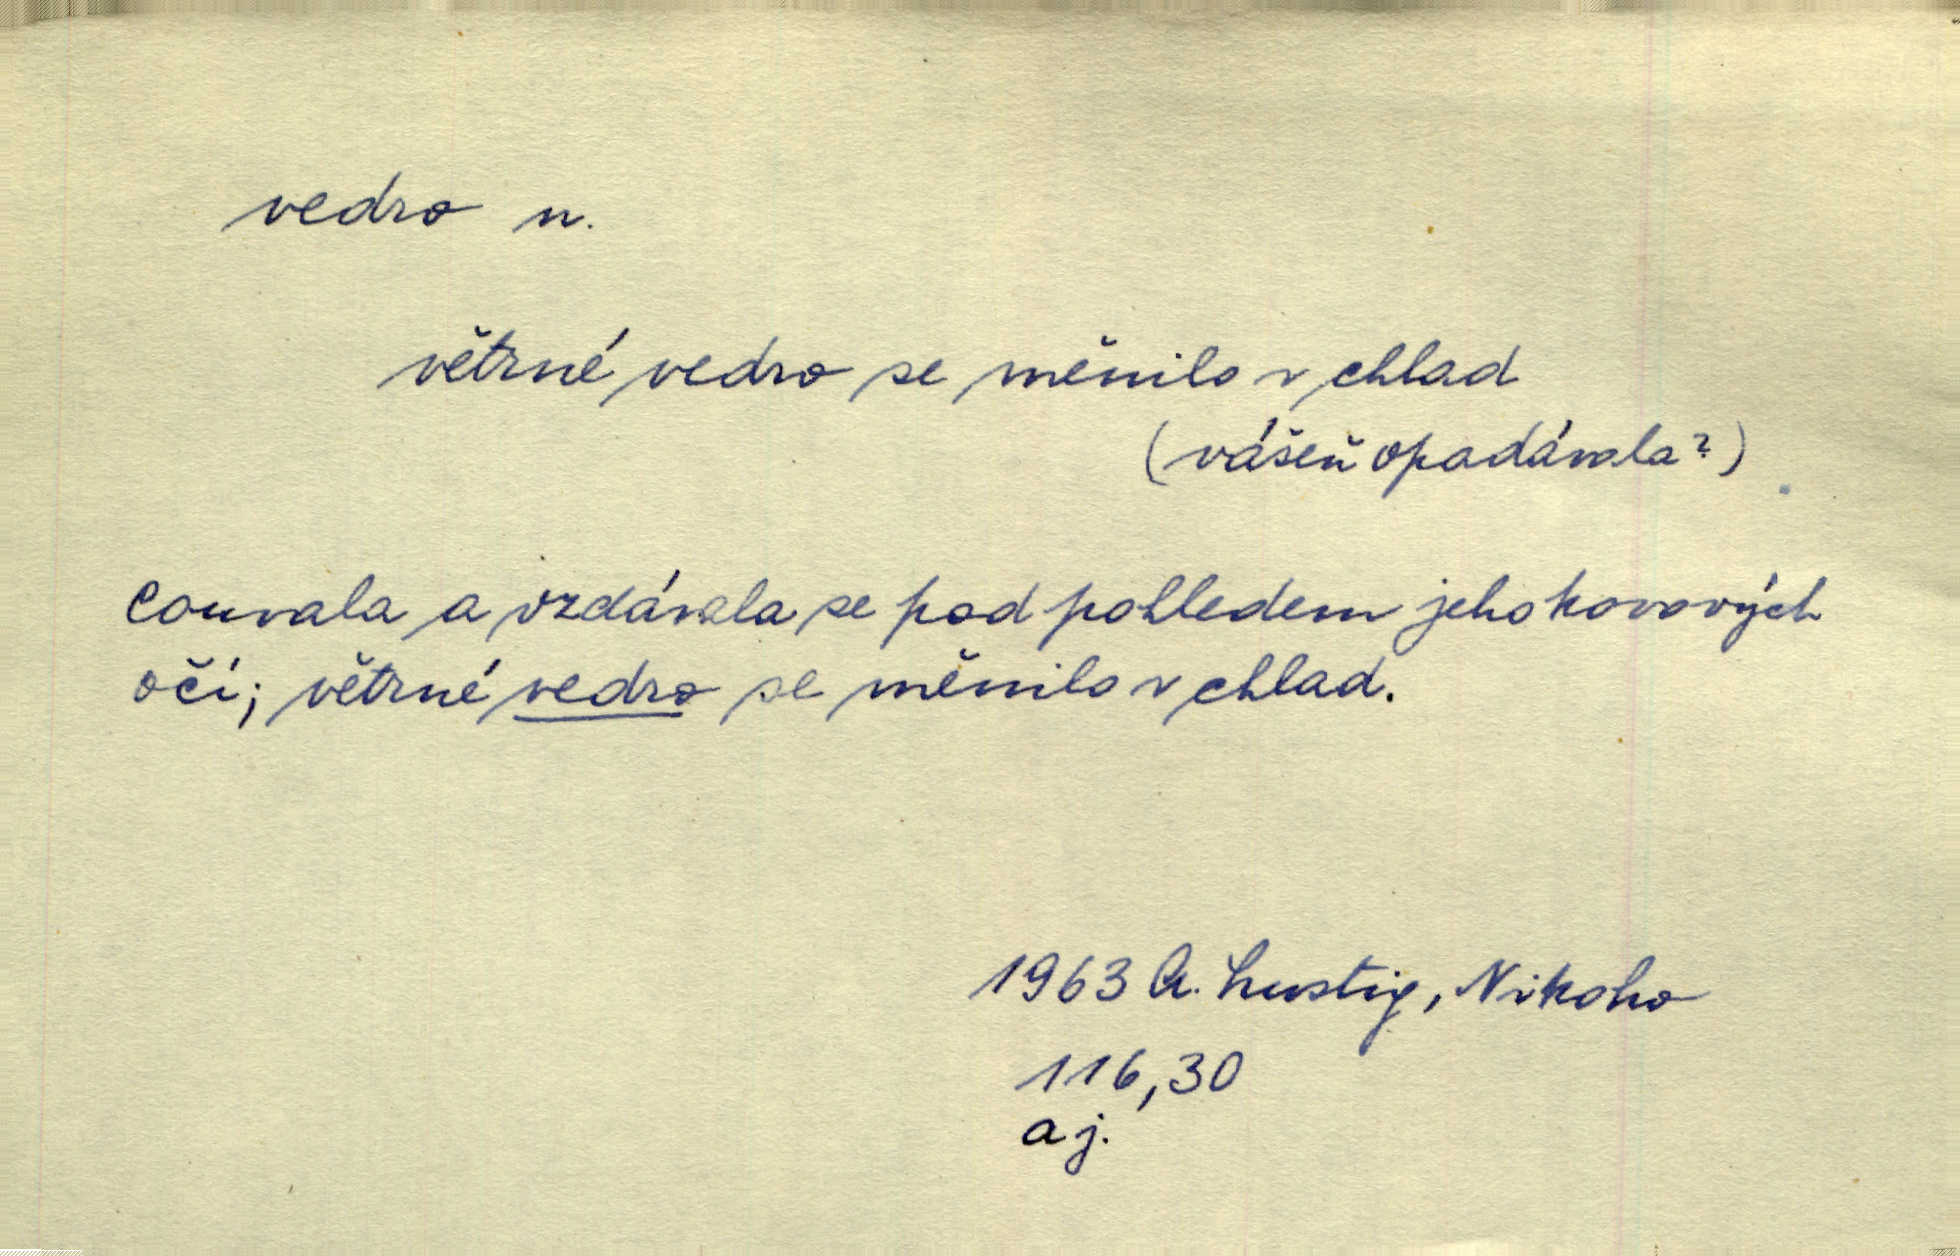 vedro n.
větrné vedro se měnilo v chlad
(vášeň opadávala?)
couvala a vzdávala se pod pohledem jeho kovových
očí; větrné vedro se měnilo v chlad.
1963 A. Lustig, Nikoho
116,30
aj.